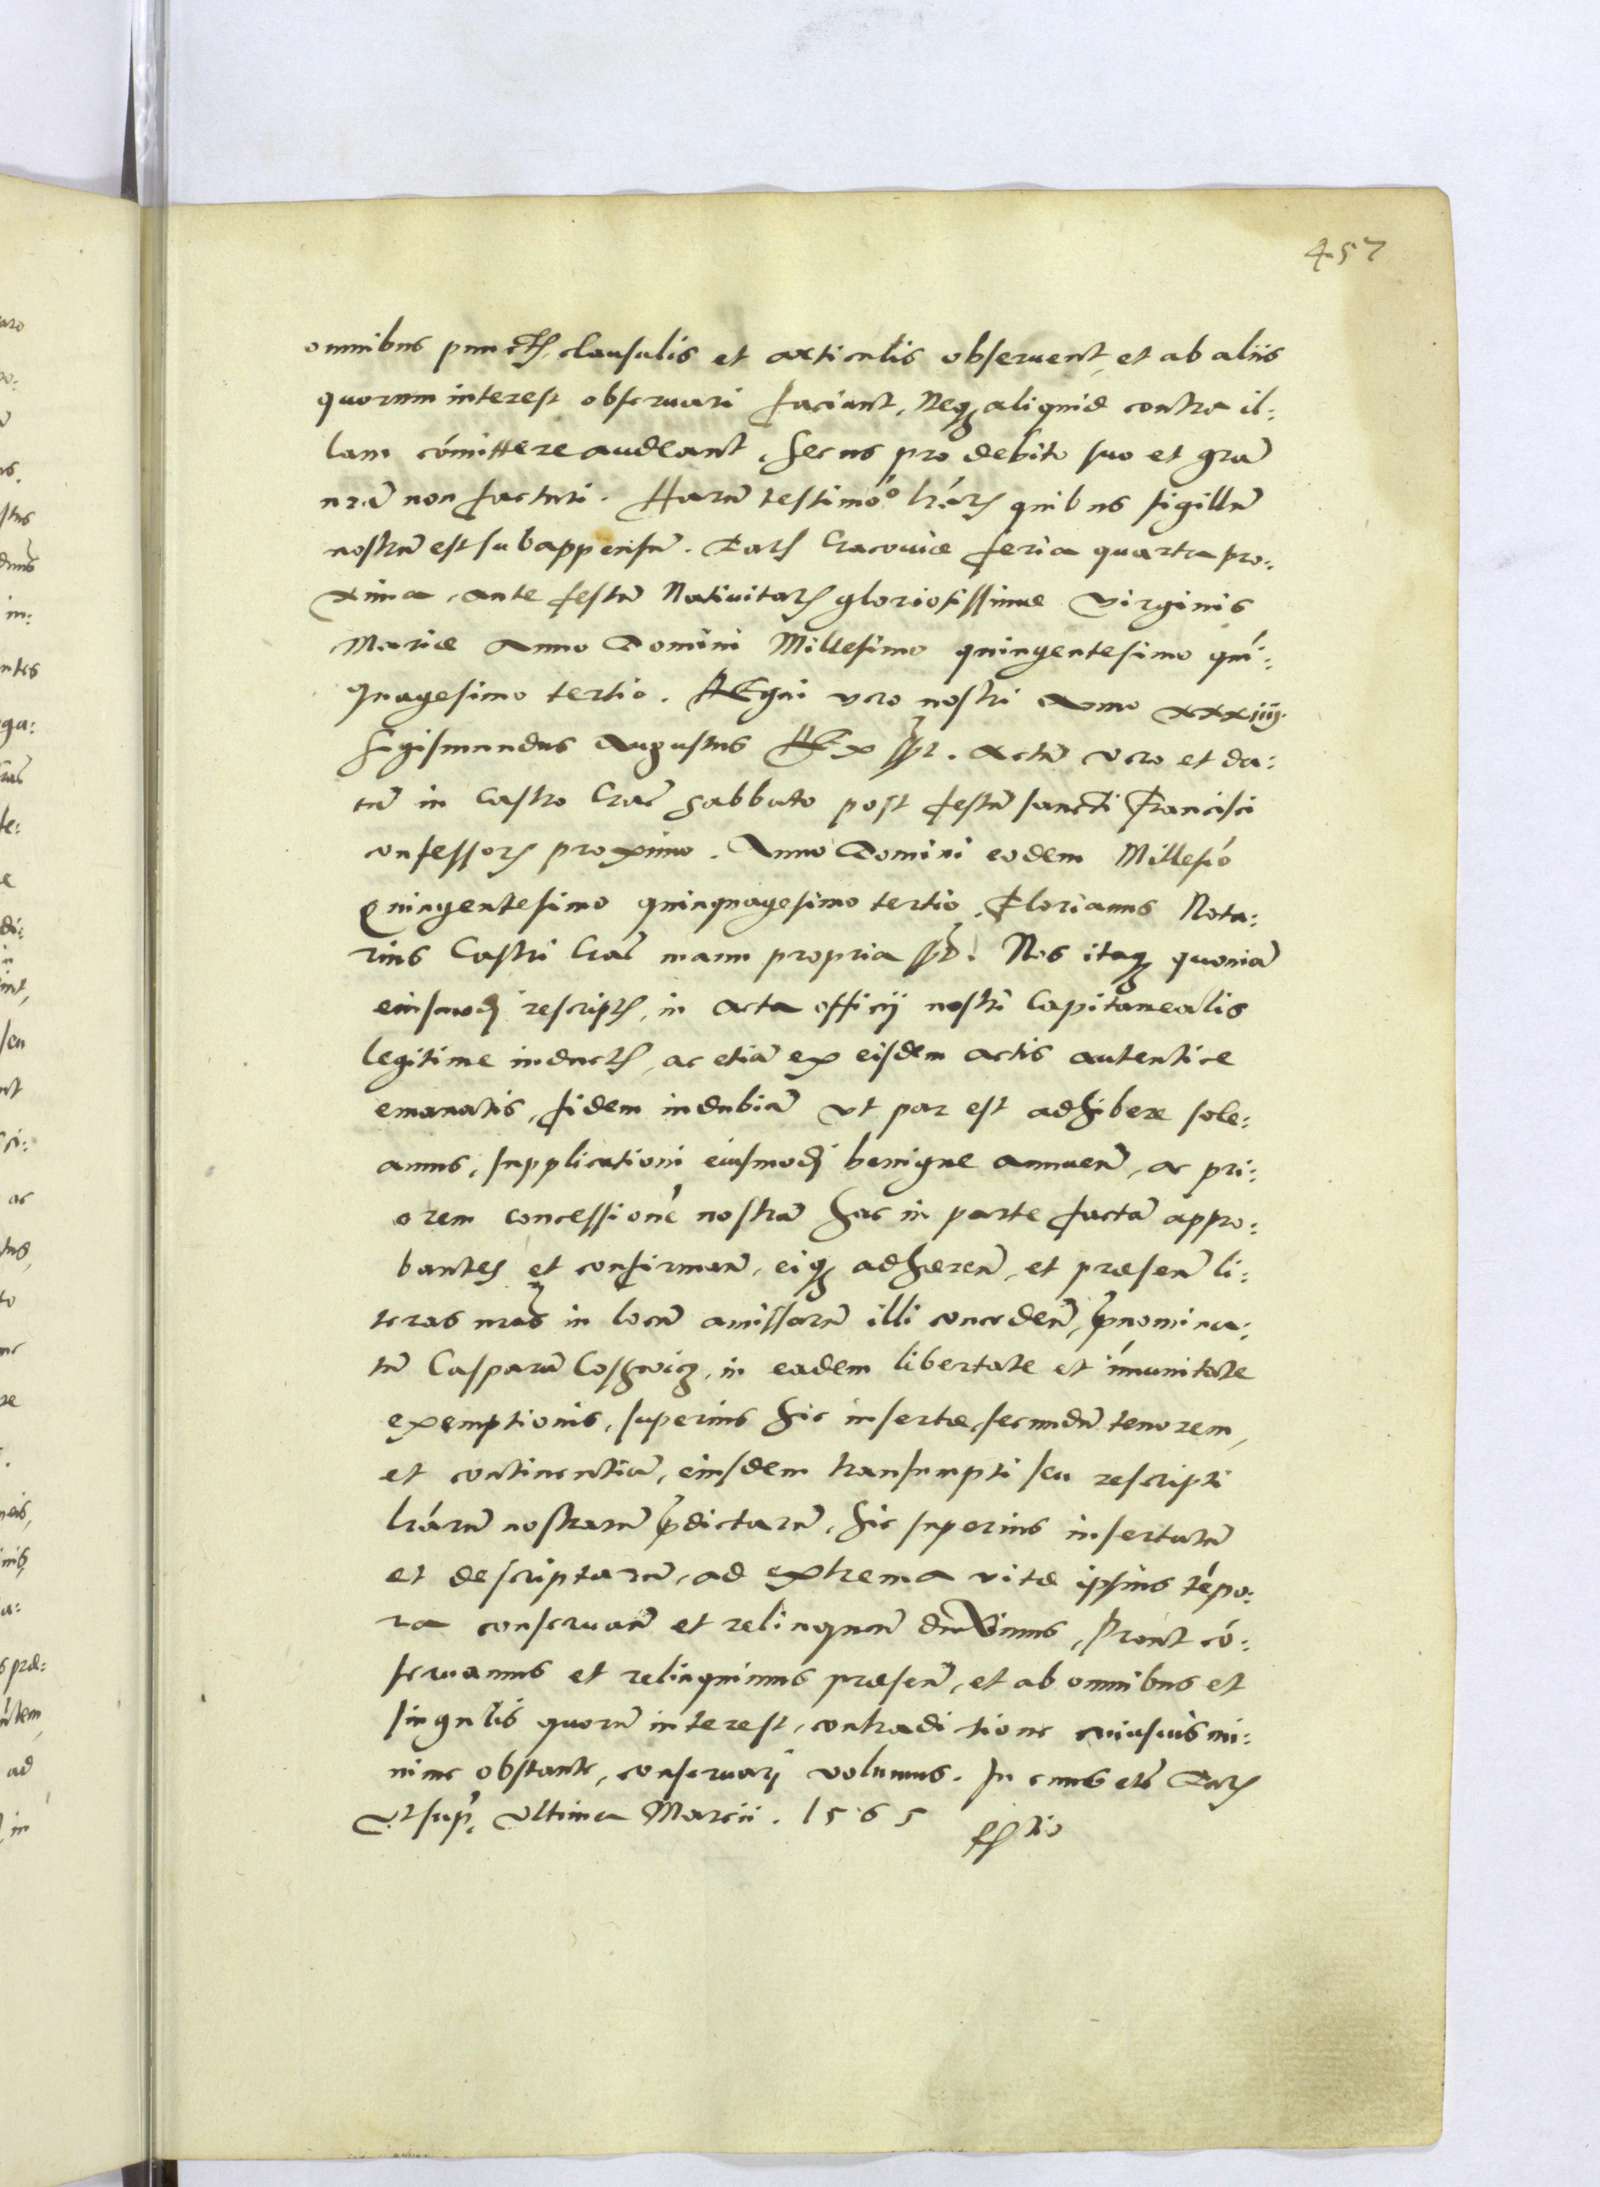 457
omnibus punctis, clausulis et articulis obseruent, et ab aliis
quorum interest obseruari faciant, Neqȝ aliquid contra il:
lam cōmittere audeant. Secus pro debito suo et grā
nrā non facturi. Harū testimōo lrārȝ quibus sigillū
nostrū est subappensū. Datȝ Cracouiæ feria quarta pro:
xima, ante festū Natiuitatȝ gloriosissimæ virginis
Mariæ Anno Domini Millesimo quingentesimo quī:
quagesimo tertio. REgni vero nostri anno xxxiiij.
Sigismundus Augustus REx sst. Actū vero et da:
tū in Castro Crać Sabbato post festū sancti Francisci
confessorȝ proximo. Anno Domini eodem Millesīo
Quingentesimo quinquagesimo tertio. Florianus Nota:
rius Castri Crać manu propria sst. Nos itaqȝ quoniā
eiusmodi rescriptȝ, in acta officij nostri Capitanealis
legitime inductȝ, ac etiā ex eisdem actis autentice
emanatis, fidem indubiā vt par est adhibere sole:
amus, supplicationi eiusmodi benigne annuen̄, ac pri:
orem concessionē nostrā hac in parte factā appro:
bantes et confirman̄, eiqȝ adhæren̄, et præsen̄ li:
teras nrās in locū amissarū illi conceden̄, p̄nomina:
tū Casparū Coshwicz, in eadem libertate et īmunitate
exemptionis, superius hic insertæ, secundū tenorem,
et continentiā, eiusdem transumpti seu rescripti
lrārū nostrarū p̄dictarū, hic superius insertarū
et descriptarū, ad extrema vitæ ipsius tēpo:
ra conseruan̄ et relinquen̄ duximus, Prout cō:
seruamus et relinquimus præsen̄, et ab omnibus et
singulis quorū interest, contraditione cuiusuis mi:
nime obstante, conseruari volumus. In cuius etc̄ Datȝ
Vt sup̄, Vltima Marcii. 1565